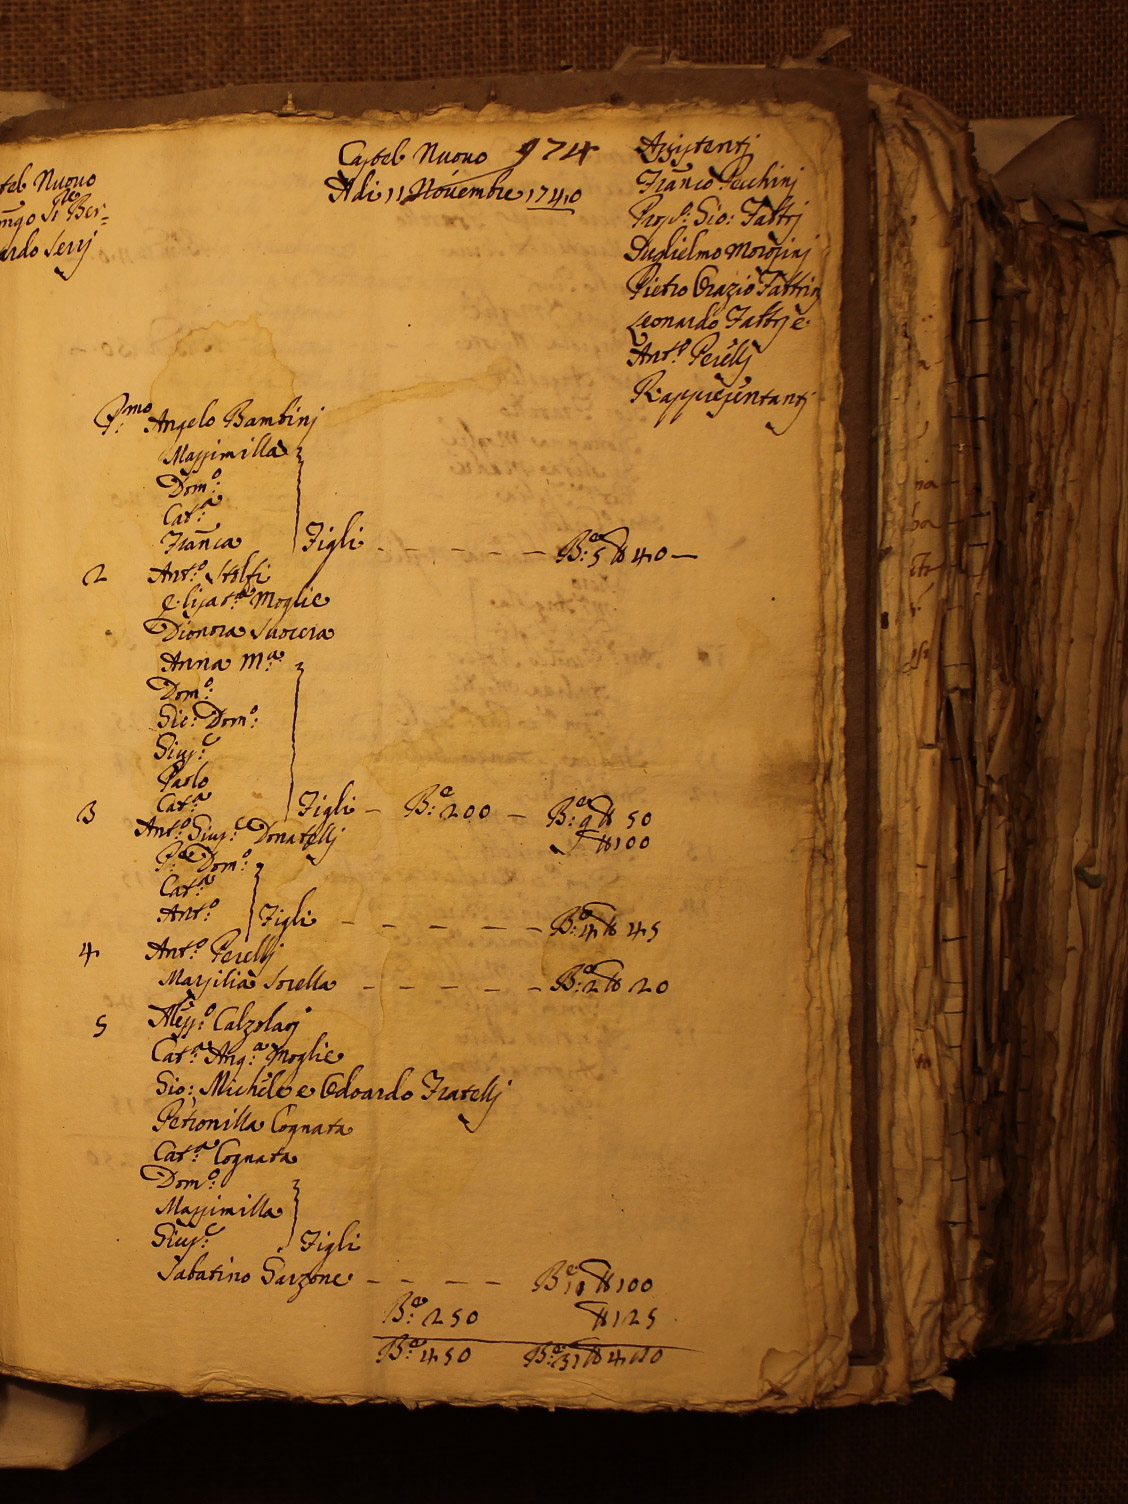 stel Nuovo
ardo Serrj
Castel Nuovo 974
Adi 11 Novembre 1740
Assistenti
Franco Pecchinj
Gio: Fattrj
Guglielmo Morosinj
Pietro Orazio Fattrin
Leonardo Fattrj e
Ant.º Perellj
Rappresentantj
P:mo Angelo Bambinj
Massimilla
Dom:º
Cat:ª
Franca Figli - - - - B:e 5 tt 40 -
2 Ant:º Stelfi
Elisat:ª Moglie
Dionora Suocera
Anna M:ª
Dom:º
Gio: Dom:º
Gius:e
Paolo
Cat:ª Figli - B:e 200 - B:e 9 tt 50
tt 100
3 Ant:º Gius:e Donatellj
Dom:º
Cat:ª
Ant:º Figli - - - - - B:e 4 tt 45
4 Ant:º Perellj
Marsilia Sorella - - - - - B:e 2 tt 20
5 Aless:º Calzolarj
Cat:ª Ang:ª Moglie
Gio: Michele e Odoardo Fratellj
Petronilla Cognata
Cat:ª Cognata
Dom:º
Massimilla
Gius:e Figli
Sabatino Garzone - - - - B:e 11 tt 100
B:e 250 tt 125
B:e 450 B:e 31 tt